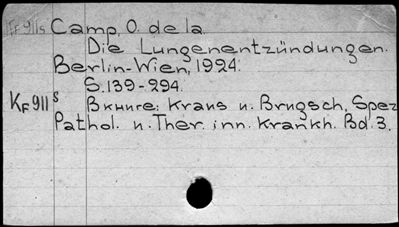 KF 911s Camp, O. de la.
Die Lungenentzündungen.
Berlin-Wien, 1924.
S. 139-294.
KF 911 s Вкниге: Kraus u. Brugsch, Spez.
Pathol. u. Ther. inn. Krankh. Bd. 3.